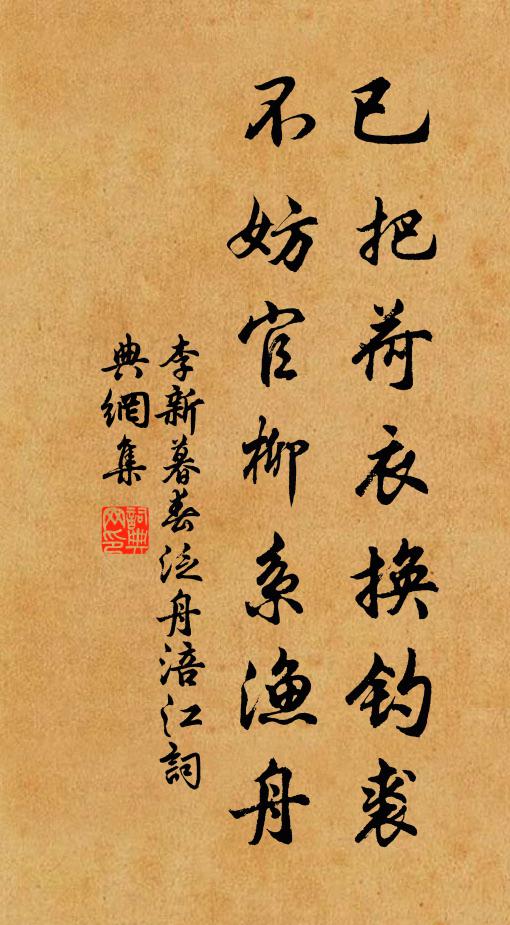 已把荷衣換釣裘
不妨官柳系漁舟
李新暮春泛舟涪江詞
典網集
詞典
網印